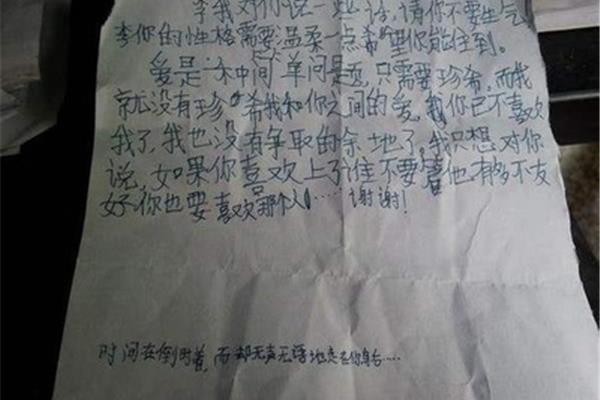 李我对你说一些话,请你不要生气
李你的性格需要温柔一点希望你能住到。
爱是一木中间单问是觅,只需要珍希,而我
就尤没有珍希我和你之间的爱,我你已不喜欢
我了,我也没有争取的余地了,我只想对你
说,如果你喜欢上了谁不要害他,有多不友
好你也要喜欢那个人……谢谢!
时间在倒时着,而却无声无语地走在你身后……